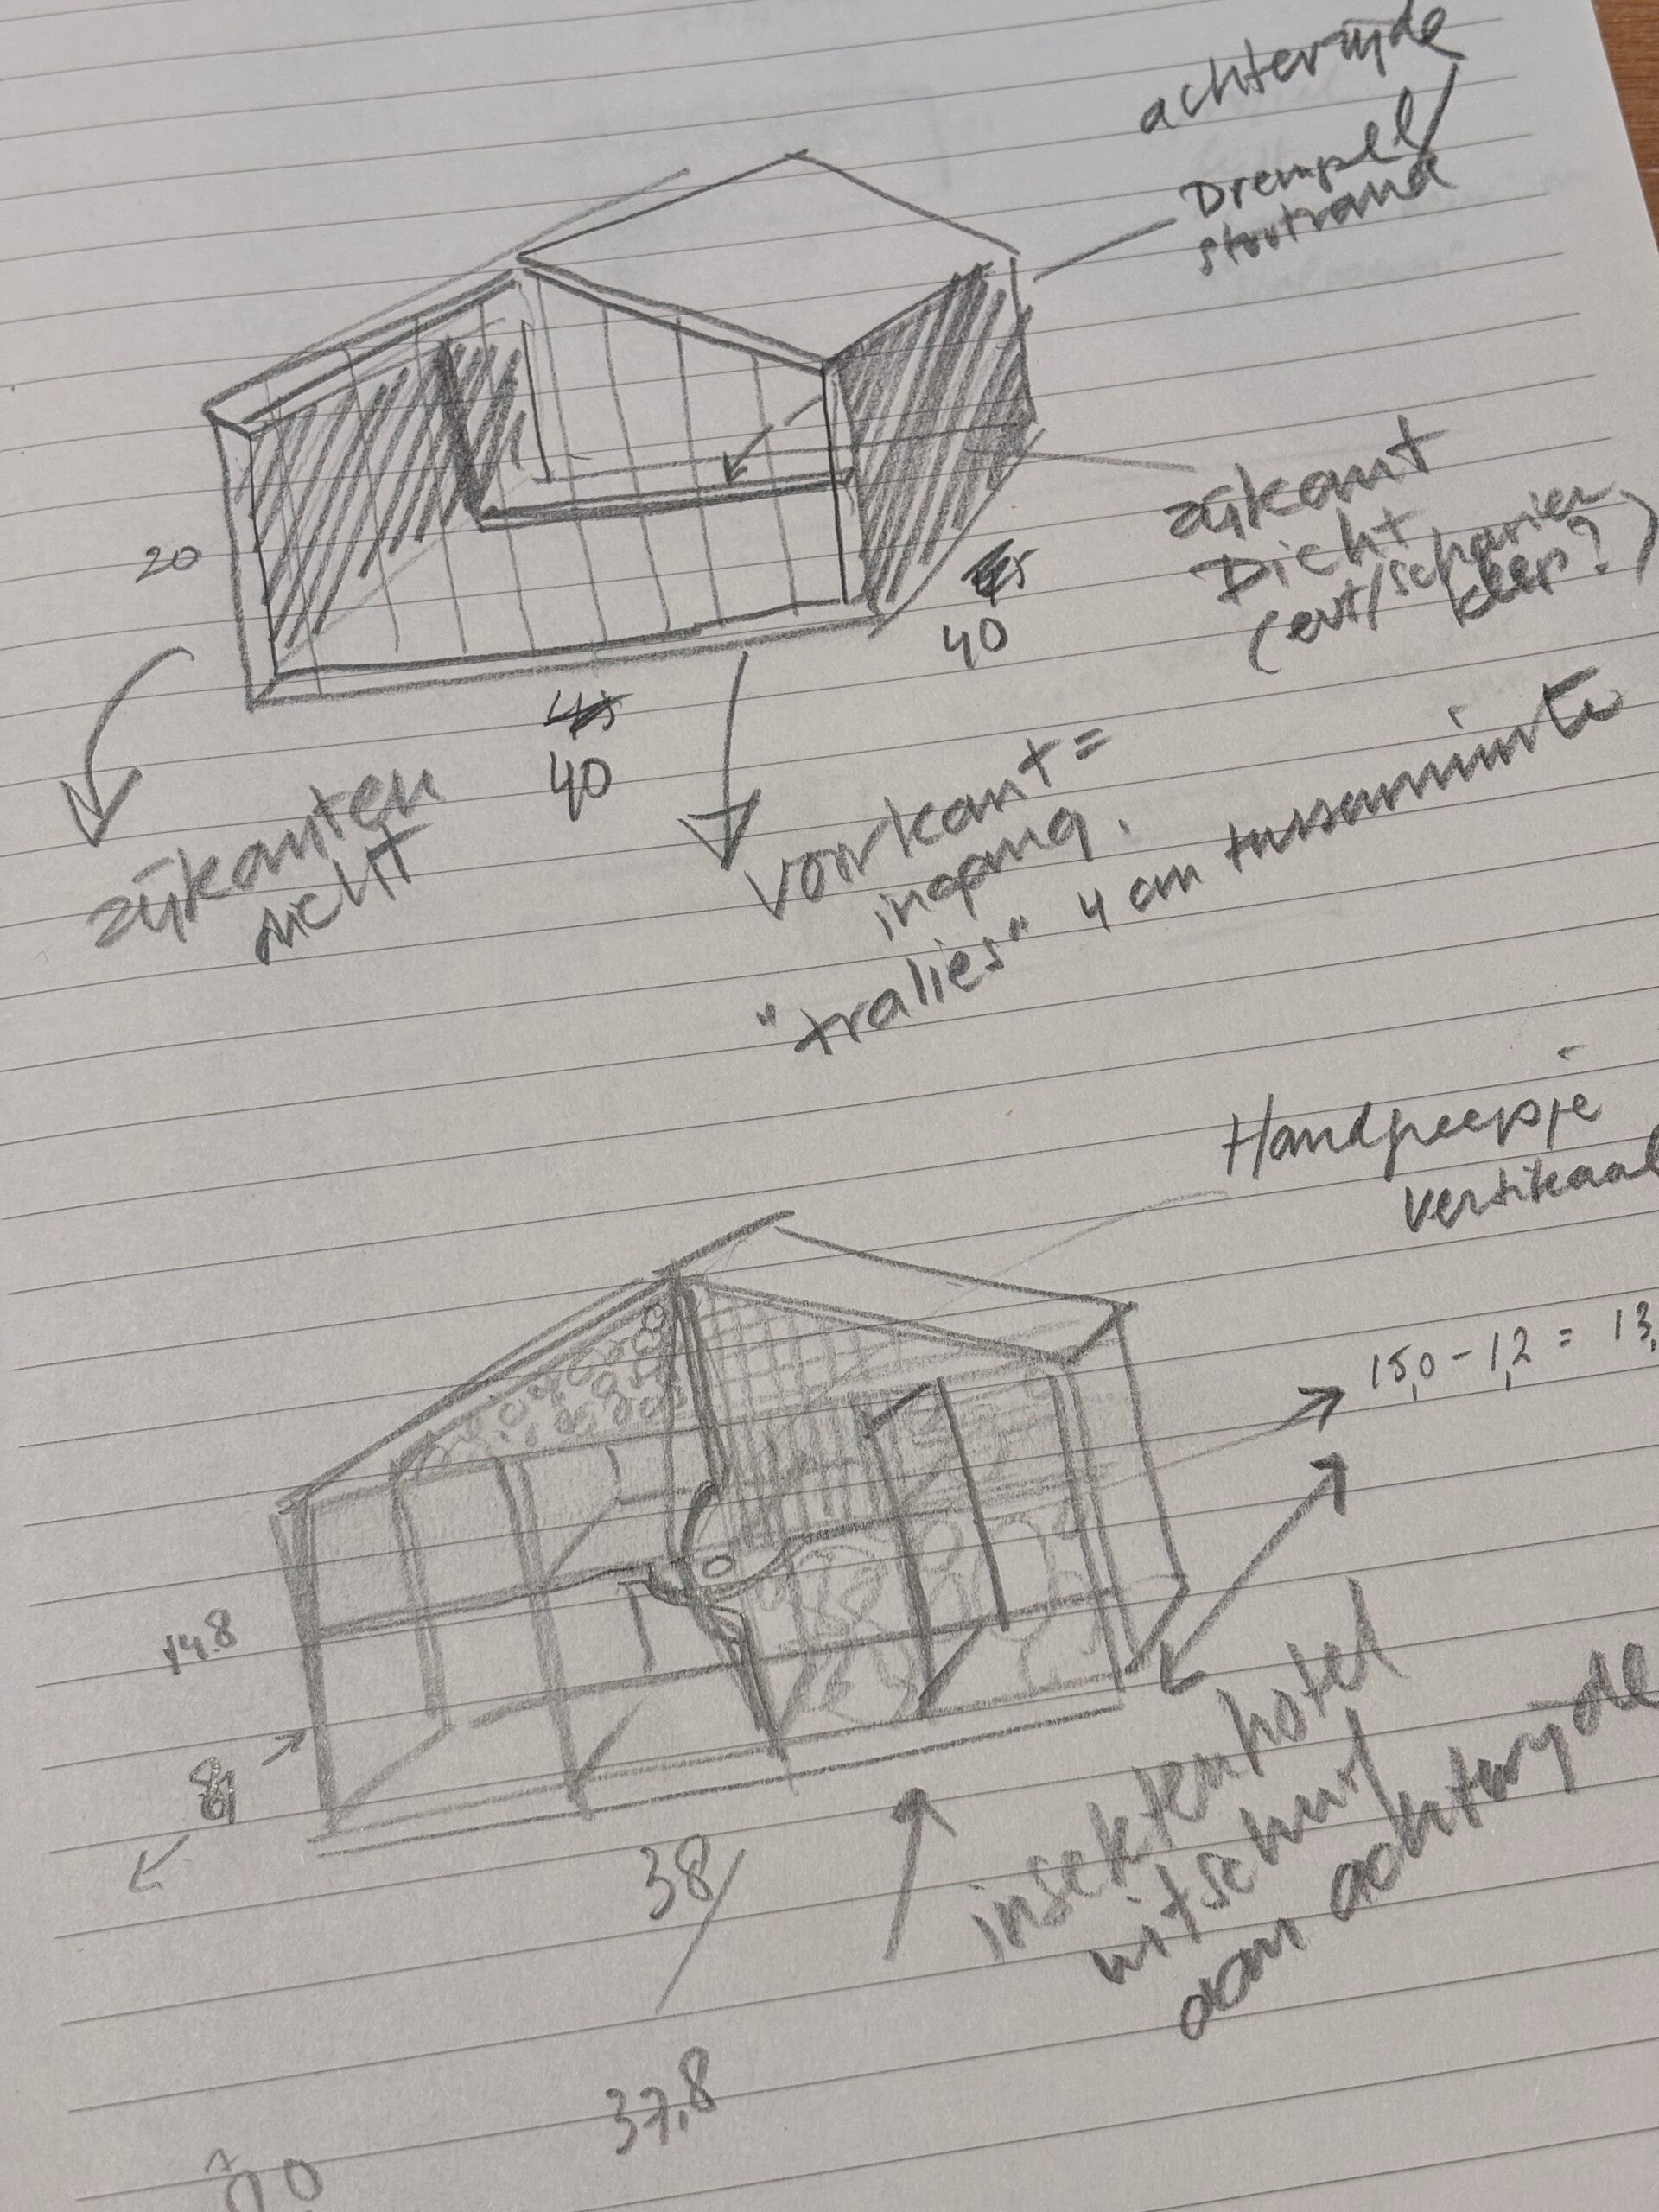 achterzijde
Drempel/
stootrand
20
zijkant
Dicht
(evt/scharnier
klep?)
45
40
45
40
zijkanten
dicht
voorkant =
ingang.
"tralies" 4 cm tussenruimte
Handgreepje
vertikaal
15,0 - 1,2 = 13,
14.8
38/
37,8
insektenhotel
uitschuif
aan achterzijde